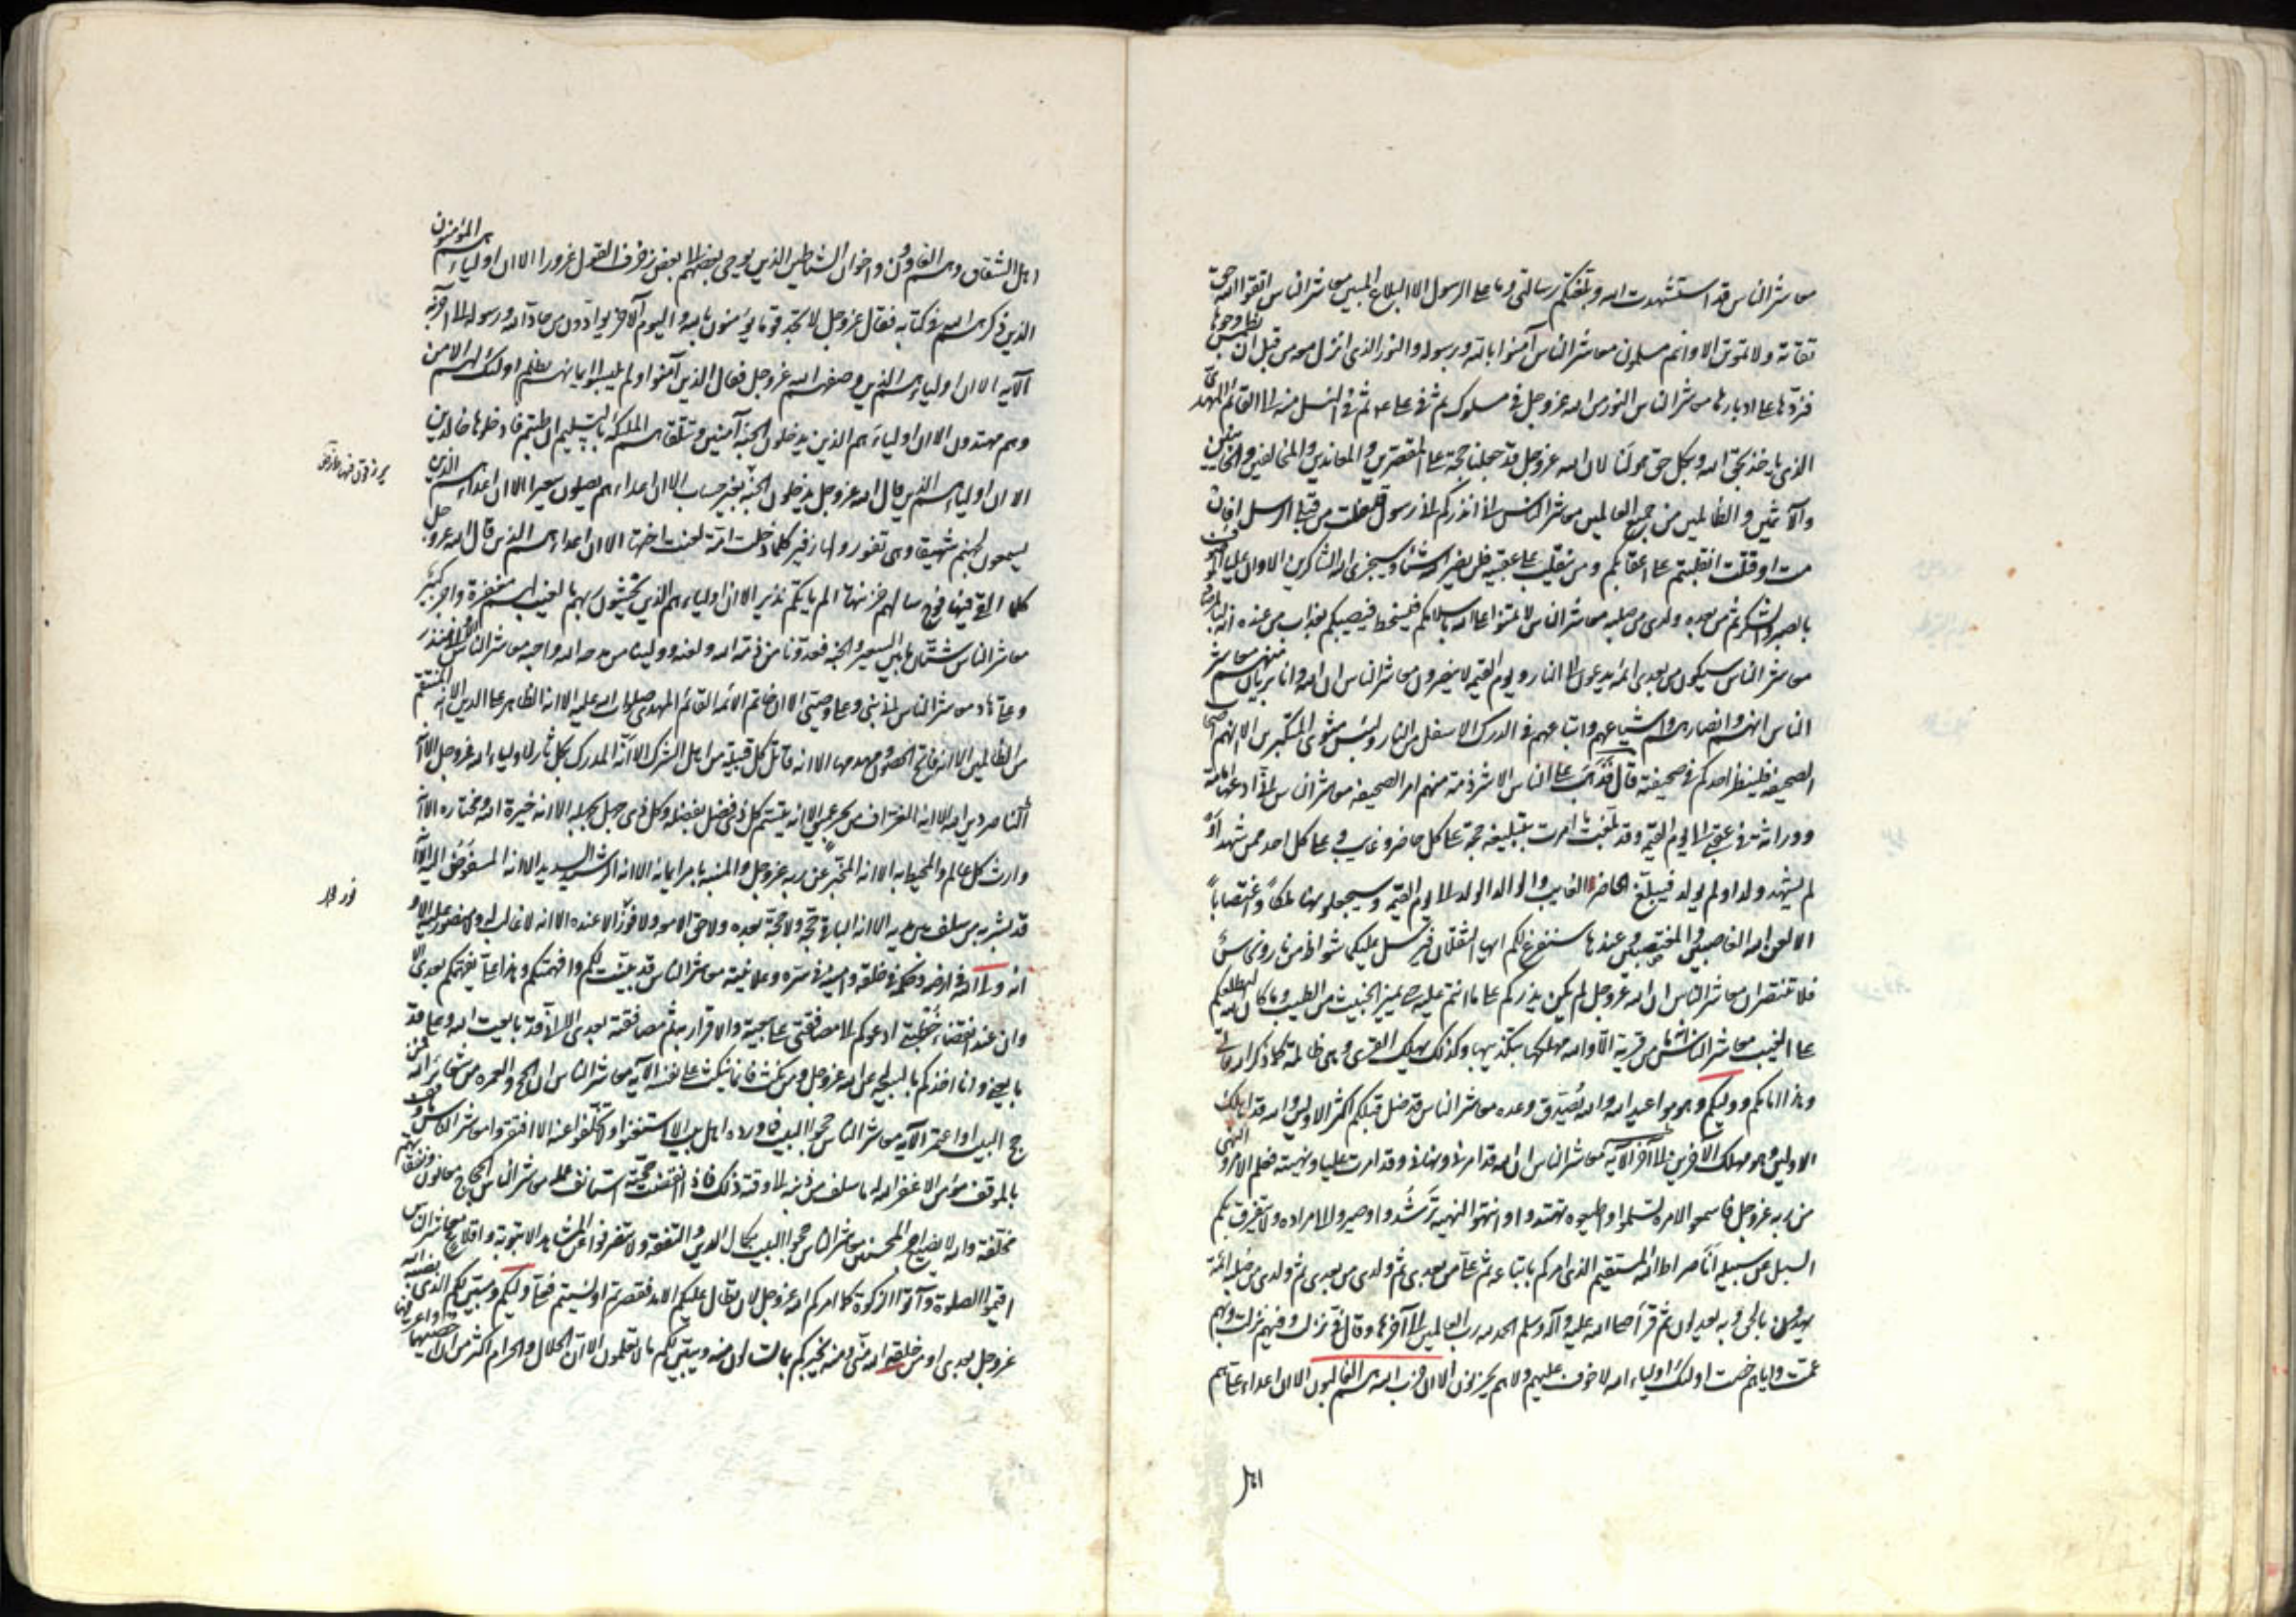 معاشر الناس قد استشهدت الله وبلغتكم رسالتي وما على الرسول الا البلاغ المبين معاشر الناس اتقوا الله حق
تقاته ولا تموتن الا وانتم مسلمون معاشر الناس آمنوا بالله ورسوله والنور الذي انزل معه من قبل ان نطمس وجوها
فنردها على ادبارها معاشر الناس النور من الله عز وجل في مسلوك ثم في علي ثم في النسل منه الى القائم المهدي
الذي ياخذ بحق الله وبكل حق هو لنا لان الله عز وجل قد جعلنا حجة على المقصرين والمعاندين والمخالفين والخائنين
والآثمين والظالمين من جميع العالمين معاشر الناس اني انذركم اني رسول قد خلت من قبلي الرسل افان
مت او قتلت انقلبتم على اعقابكم ومن ينقلب على عقبيه فلن يضر الله شيئا وسيجزي الله الشاكرين الا وان عليا
بالصبر والشكر ثم من بعده ولدي من صلبه معاشر الناس لا تمنوا على الله باسلامكم فيسخط فيصيبكم بعذاب من عنده انه
معاشر الناس سيكون من بعدي ائمة يدعون الى النار ويوم القيمة لا ينصرون معاشر الناس ان الله وانا بريان منهم معاشر
الناس انهم وانصارهم واشياعهم واتباعهم في الدرك الاسفل من النار ولبئس مثوى المتكبرين الا انهم اصحاب
الصحيفة فلينظر احدكم في صحيفته قال فذهب على الناس الا شرذمة منهم امر الصحيفة معاشر الناس اني ادعها امامة
ووراثة في عقبي الى يوم القيمة وقد بلغت ما امرت بتبليغه حجة على كل حاضر وغايب وعلى كل احد ممن شهد او
لم يشهد ولد او لم يولد فيبلغ الحاضر الغايب والوالد الولد الى يوم القيمة وسيجعلونها ملكا واغتصابا
الا لعن الله الغاصبين والمغتصبين وعندها سنفرغ لكم ايها الثقلان فيرسل عليكما شواظ من نار ونحاس
فلا تنتصران معاشر الناس ان الله عز وجل لم يكن يذركم على ما انتم عليه حتى يميز الخبيث من الطيب وما كان الله ليطلعكم
على الغيب معاشر الناس انه ما من قرية الا والله مهلكها بتكذيبها وكذلك يهلك القرى وهي ظالمة كما ذكر الله تعالى
وهذا امامكم ووليكم وهو مواعيد الله والله يصدق وعده معاشر الناس قد ضل قبلكم اكثر الاولين والله قد اهلك
الاولين وهو مهلك الآخرين الى آخر الآية معاشر الناس ان الله قد امرني ونهاني وقد امرت عليا ونهيته فعلم الامر والنهي
من ربه عز وجل فاسمعوا لامره تسلموا واطيعوه تهتدوا وانتهوا لنهيه ترشدوا وصيروا الى مراده ولا تتفرق بكم
السبل عن سبيله انا صراط الله المستقيم الذي امركم باتباعه ثم علي من بعدي ثم ولدي من صلبه ائمة
يهدون بالحق وبه يعدلون ثم قرأ صلى الله عليه وآله وسلم الحمد لله رب العالمين الى آخرها وقال في نزلت وفيهم نزلت ولهم
عمت واياهم خصت اولئك اولياء الله لا خوف عليهم ولا هم يحزنون الا ان حزب الله هم الغالبون الا ان اعداء علي هم
اهل
اهل الشقاق وهم الغاوون واخوان الشياطين الذين يوحي بعضهم الى بعض زخرف القول غرورا الا ان اولياءهم المؤمنون
الذين ذكرهم الله في كتابه فقال عز وجل لا تجد قوما يؤمنون بالله واليوم الآخر يوادون من حاد الله ورسوله الى آخر
الآية الا ان اولياءهم الذين وصفهم الله عز وجل فقال الذين آمنوا ولم يلبسوا ايمانهم بظلم اولئك لهم الامن
وهم مهتدون الا ان اولياءهم الذين يدخلون الجنة آمنين وتتلقاهم الملئكة بالتسليم ان طبتم فادخلوها خالدين
الا ان اولياءهم الذين قال الله عز وجل يدخلون الجنة بغير حساب الا ان اعداءهم يصلون سعيرا الا ان اعداءهم الذين
يسمعون لجهنم شهيقا وهي تفور ولها زفير كلما دخلت امة لعنت اختها الا ان اعداءهم الذين قال الله عز وجل
كلما القي فيها فوج سالهم خزنتها الم ياتكم نذير الا ان اولياءهم الذين يخشون ربهم بالغيب لهم مغفرة واجر كبير
معاشر الناس شتان ما بين السعير والجنة فعدونا من ذمه الله ولعنه وولينا من مدحه الله واحبه معاشر الناس الا واني منذر
وعلي هاد معاشر الناس اني نبي وعلي وصيي الا ان خاتم الائمة القائم المهدي صلوات الله عليه الا انه الظاهر على الدين الا انه المنتقم
من الظالمين الا انه فاتح الحصون وهدمها الا انه قاتل كل قبيلة من اهل الشرك الا انه المدرك بكل ثار لاولياء الله عز وجل الا انه
الناصر دين الله الا انه الغراف من بحر عميق الا انه يسم كل ذي فضل بفضله وكل ذي جهل بجهله الا انه خيرة الله ومختاره الا انه
وارث كل عالم والمحيط به الا انه المخبر عن ربه عز وجل والمنبه بامر ايمانه الا انه الرشيد السديد الا انه المفوض اليه الا انه
قد بشر به من سلف بين يديه الا انه الباقي حجة ولا حجة بعده ولا حق الا معه ولا نور الا عنده الا انه لا غالب له ولا منصور عليه الا
انه ولي الله في ارضه وحكمه في خلقه وامينه في سره وعلانيته معاشر الناس قد بينت لكم وافهمتكم وهذا علي يفهمكم بعدي الا
وان عند انقضاء خطبتي ادعوكم الى مصافقتي على بيعته والاقرار به ثم مصافقته بعدي الا اني قد بايعت الله وعلي قد
بايعني وانا اخذكم بالبيعة عن الله عز وجل ومن نكث فانما ينكث على نفسه الآية معاشر الناس ان الحج والعمرة من شعائر الله فمن
حج البيت او اعتمر الآية معاشر الناس حجوا البيت فما ورده اهل بيت الا استغنوا ولا تخلفوا عنه الا افتقروا معاشر الناس ما وقف
بالموقف مؤمن الا غفر الله له ما سلف من ذنبه الى وقته ذلك فاذا انقضت حجته استانف عمله معاشر الناس الحجاج معانون ونفقاتهم
مخلفة والله لا يضيع اجر المحسنين معاشر الناس حجوا البيت بكمال الدين والتفقه ولا تنصرفوا عن المشاهد الا بتوبة واقلاع معاشر الناس
اقيموا الصلوة وآتوا الزكوة كما امركم الله عز وجل لان طال عليكم الامد فقصرتم او نسيتم فعلي وليكم ومبين لكم الذي نصبه الله
عز وجل بعدي او من خلقه الله مني ومنه يخبركم بما تسالون منه ويبين لكم ما لا تعلمون الا ان الحلال والحرام اكثر من ان احصيهما واعرفهما